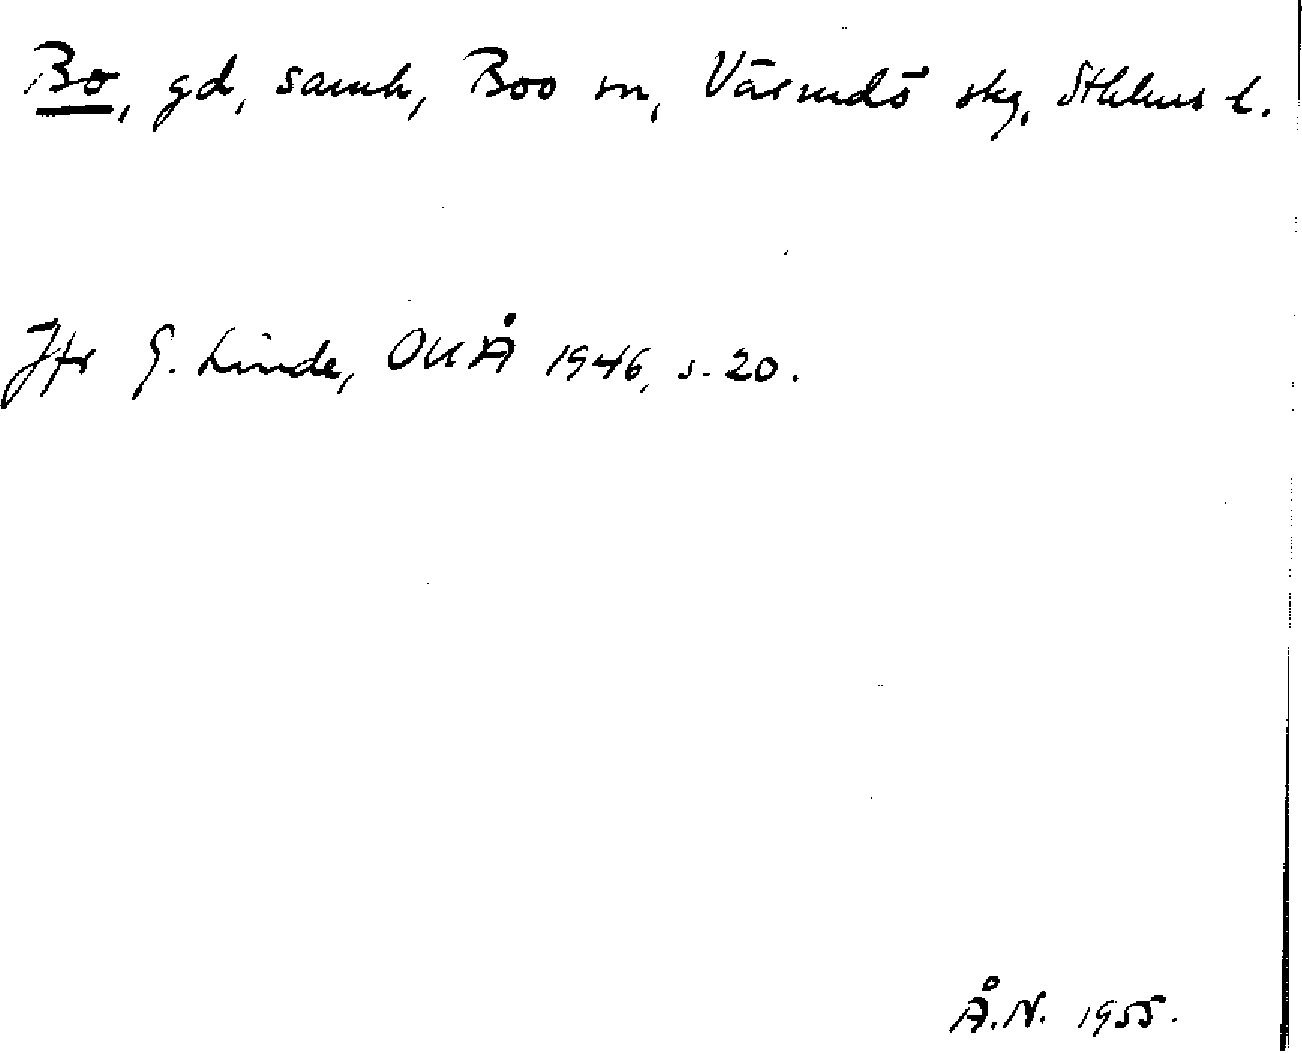 Bo, gd, samh, Boo sn, Värmdö skg, Sthlms l.
Jfr G. Linde, OUÅ 1946, s. 20.
Å.N. 1955.